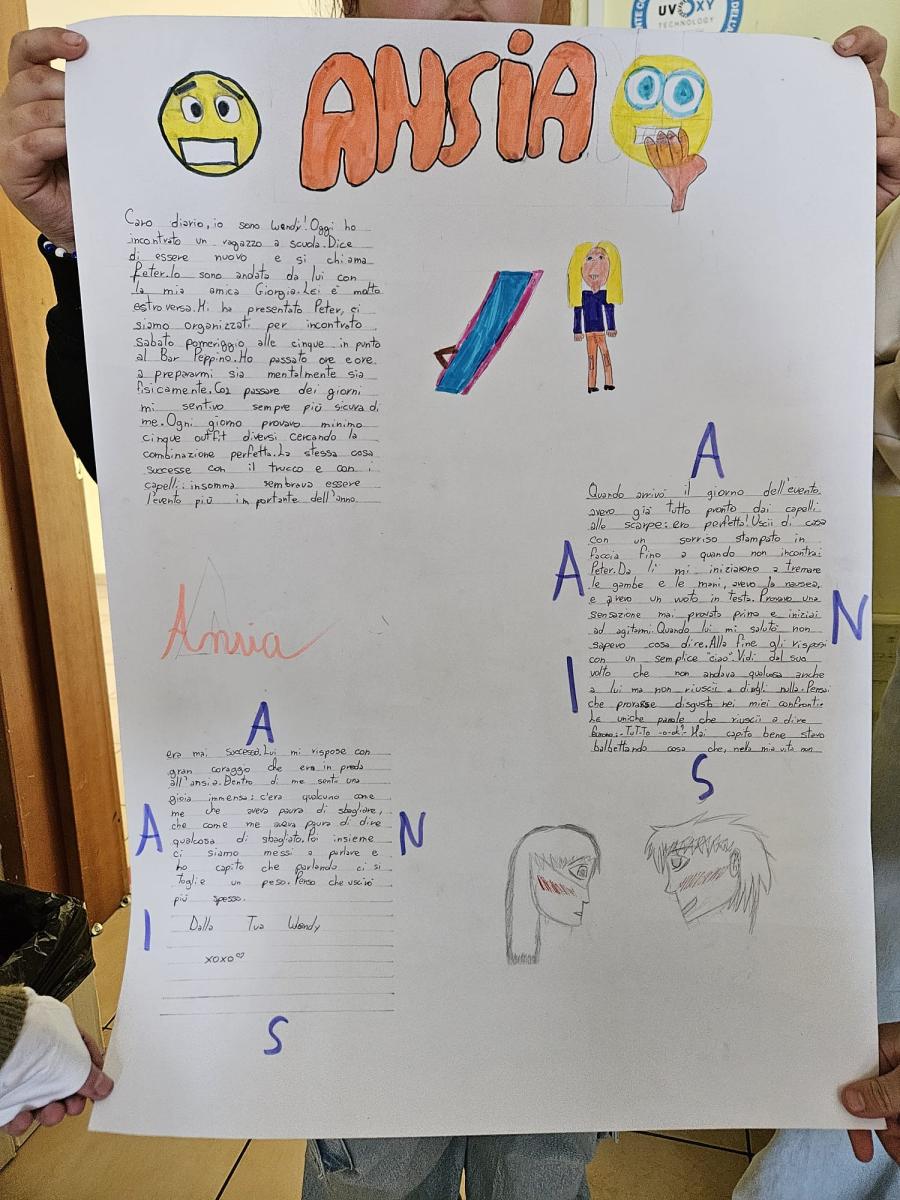 UV OXY
TECHNOLOGY
ANSiA
Caro diario, io sono Wendy! Oggi ho
incontrato un ragazzo a scuola. Dice
di essere nuovo e si chiama
Peter. Io sono andata da lui con
la mia amica Giorgia. Lei è molto
estroversa. Mi ha presentato Peter, ci
siamo organizzati per incontrato
sabato pomeriggio alle cinque in punto
al Bar Peppino. Ho passato ore e ore
a prepararmi sia mentalmente sia
fisicamente. Col passare dei giorni
mi sentivo sempre più sicura di
me. Ogni giorno provavo minimo
cinque outfit diversi cercando la
combinazione perfetta. La stessa cosa
successe con il trucco e con i
capelli: insomma sembrava essere
l'evento più importante dell'anno.
A
Quando arrivò il giorno dell'evento
avevo già tutto pronto dai capelli
alle scarpe: ero perfetta! Uscii di casa
con un sorriso stampato in
faccia fino a quando non incontrai
Peter. Da lì mi iniziarono a tremare
le gambe e le mani, avevo la nausea
e avevo un vuoto in testa. Provavo una
sensazione mai provata prima e iniziai
ad agitarmi. Quando lui mi salutò non
sapevo cosa dire. Alla fine gli risposi
con un semplice "ciao". Vidi dal suo
volto che non andava qualcosa anche
a lui ma non riuscii a dirgli nulla. Pensai
che provasse disgusto nei miei confronti e
le uniche parole che riuscii a dire
furono:- TuT-To -o-ok?- Hai capito bene stavo
balbettando cosa che, nella mia vita non
A
N
I
S
Ansia
A
era mai successo. Lui mi rispose con
gran coraggio che era in preda
all'ansia. Dentro di me sentii una
gioia immensa: c'era qualcuno come
me che aveva paura di sbagliare,
che come me aveva paura di dire
qualcosa di sbagliato. Poi insieme
ci siamo messi a parlare e
ho capito che parlando ci si
toglie un peso. Penso che uscirò
più spesso.
Dalla Tua Wendy
xoxo♡
A
N
I
S